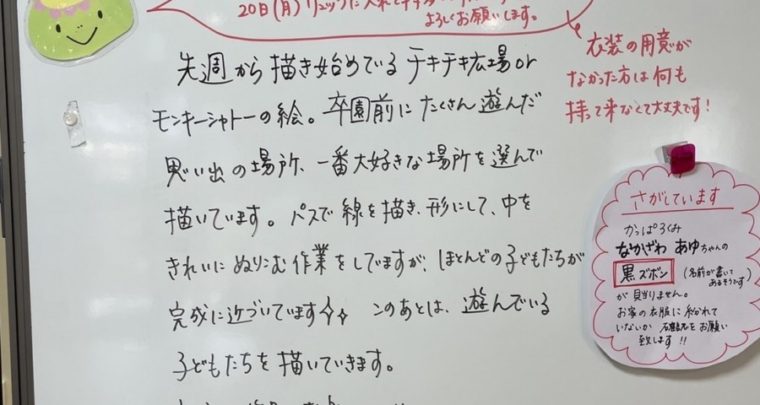 20日(月)リュックに入れて
よろしくお願いします。
衣装の用意が
なかった方は何も
持って来なくて大丈夫です!
先週から描き始めているチキチキ広場or
モンキーシャトーの絵。卒園前にたくさん遊んだ
思い出の場所、一番大好きな場所を選んで
描いています。パスで線を描き、形にして、中を
きれいにぬりこむ作業をしていますが、ほとんどの子どもたちが
完成に近づいています このあとは、遊んでいる
子どもたちを描いていきます。
さがしています
かっぱろくみ
なかざわ あゆちゃんの
黒ズボン (名前が書いて
あるそうです)
が見当りません。
お家の衣服に紛れて
いないか 確認をお願い
致します!!